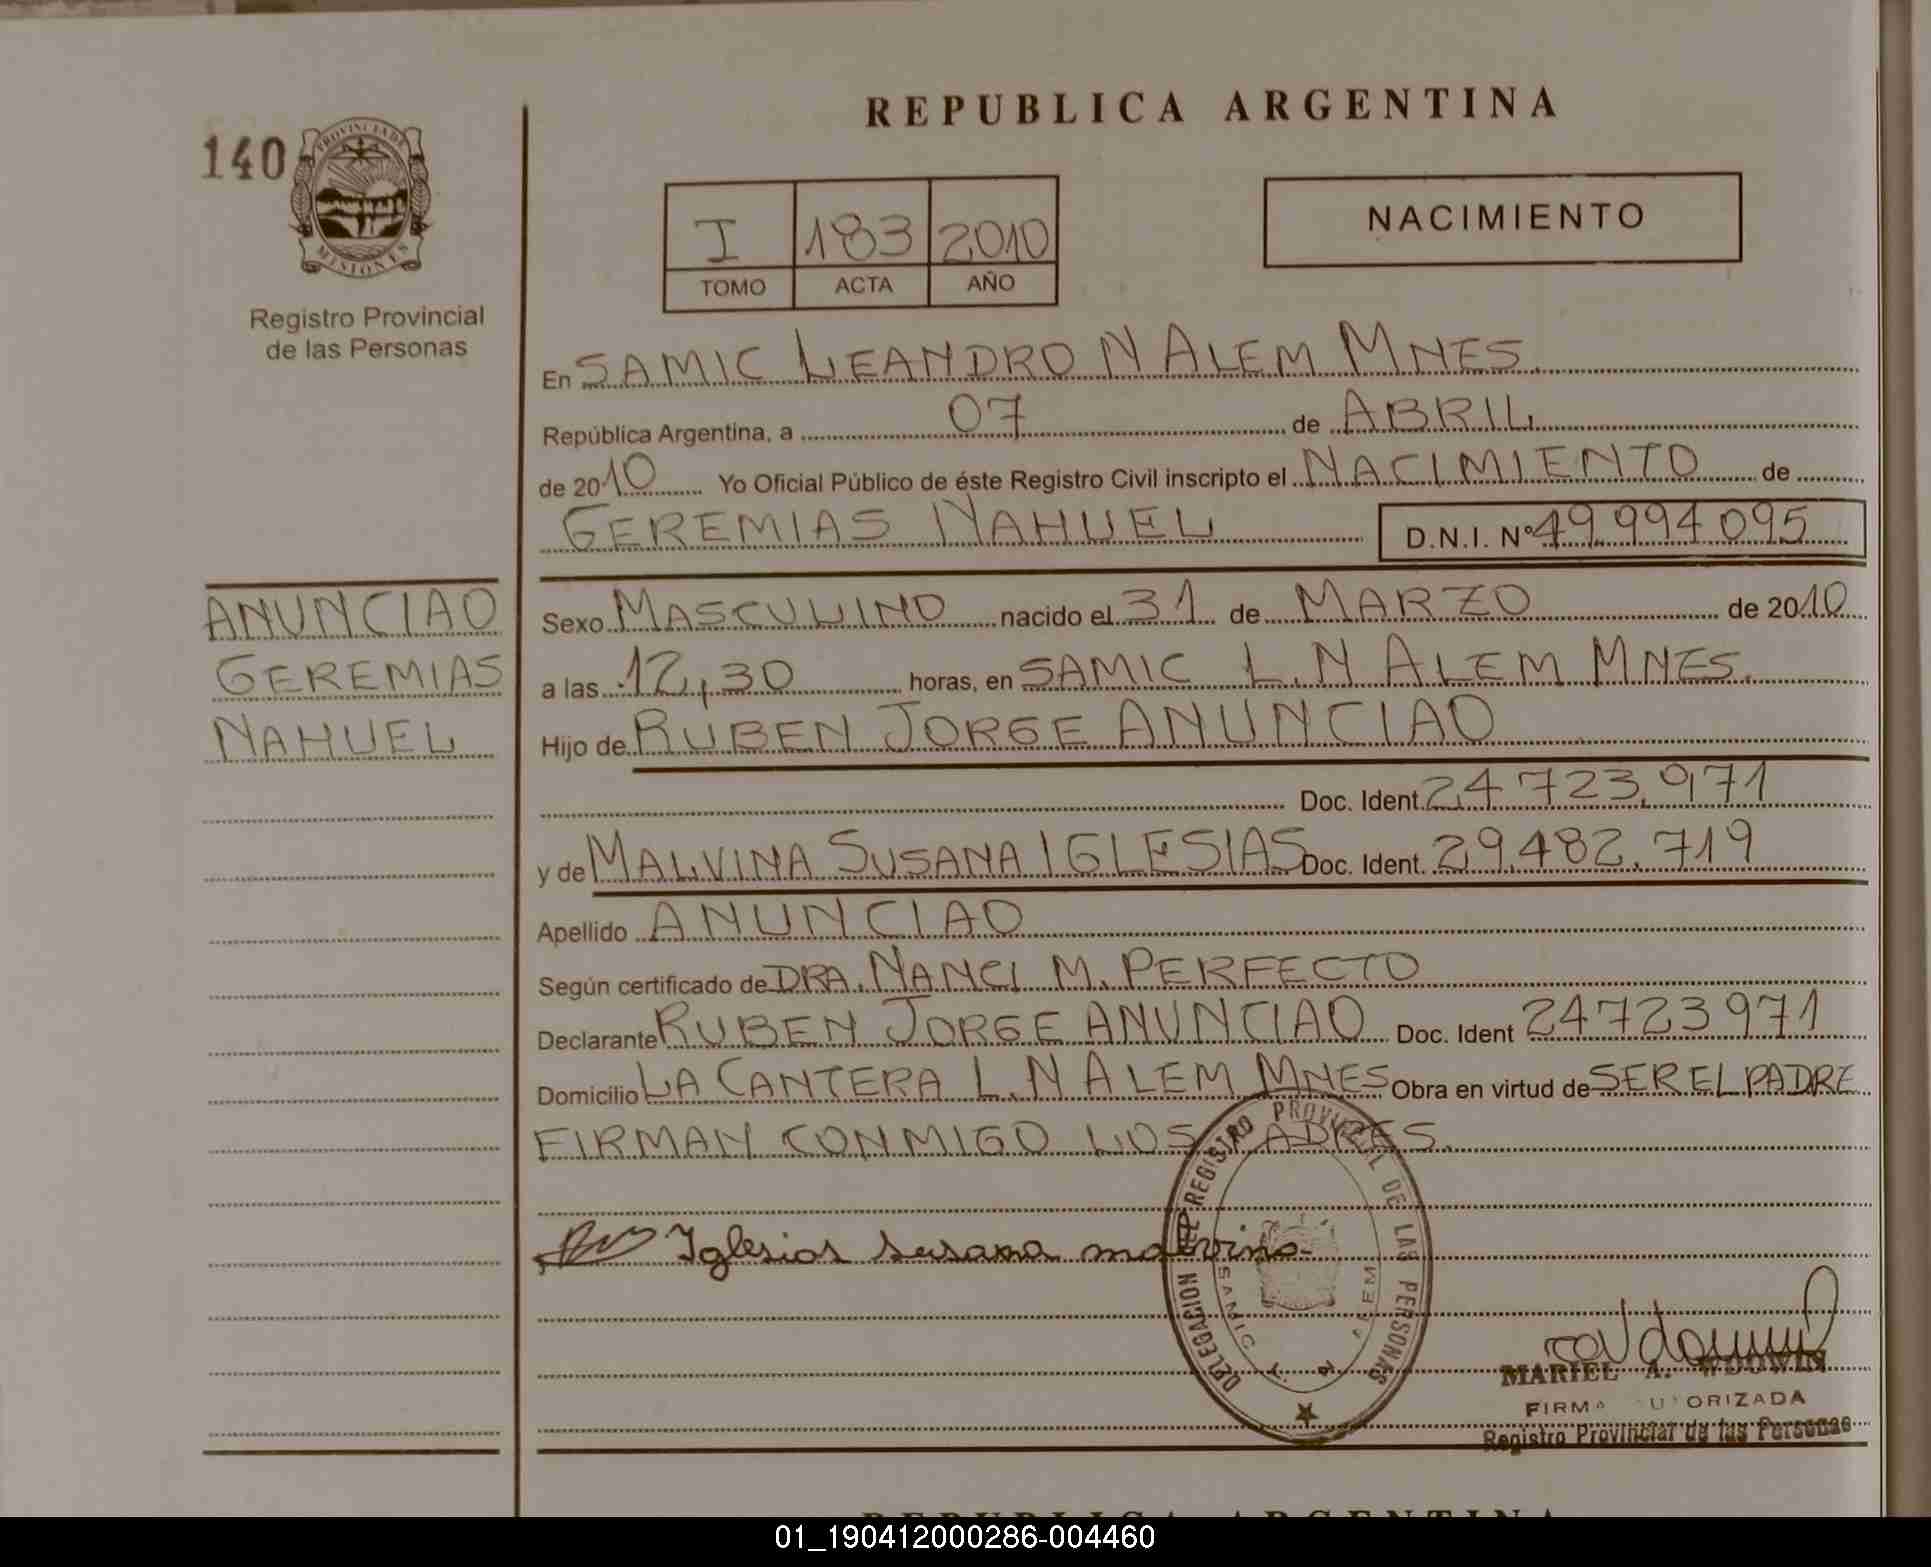 REPUBLICA ARGENTINA
140
PROVINCIA DE
MISIONES
Registro Provincial
de las Personas
I 183 2010
TOMO ACTA AÑO
NACIMIENTO
En SAMIC LEANDRO N ALEM MNES.
República Argentina, a 07 de ABRIL
de 2010 Yo Oficial Público de éste Registro Civil inscripto el NACIMIENTO de
GEREMIAS NAHUEL D.N.I. Nº 49.994.095
ANUNCIAO
GEREMIAS
NAHUEL
Sexo MASCULINO nacido el 31 de MARZO de 2010
a las 12,30 horas, en SAMIC L.N ALEM MNES.
Hijo de RUBEN JORGE ANUNCIAO
Doc. Ident. 24.723.971
y de MALVINA SUSANA IGLESIAS Doc. Ident. 29.482.719
Apellido ANUNCIAO
Según certificado de DRA. NANCI M. PERFECTO
Declarante RUBEN JORGE ANUNCIAO Doc. Ident 24723971
Domicilio LA CANTERA L.N ALEM MNES Obra en virtud de SER EL PADRE
FIRMAN CONMIGO LOS PADRES.
Iglesias susana malvina
DELEGACION DEL REGISTRO PROVINCIAL DE LAS PERSONAS
SAMIC L. N. ALEM
MARIEL A. WDOWIN
FIRMA AUTORIZADA
Registro Provincial de las Personas
REPUBLICA ARGENTINA
01_190412000286-004460